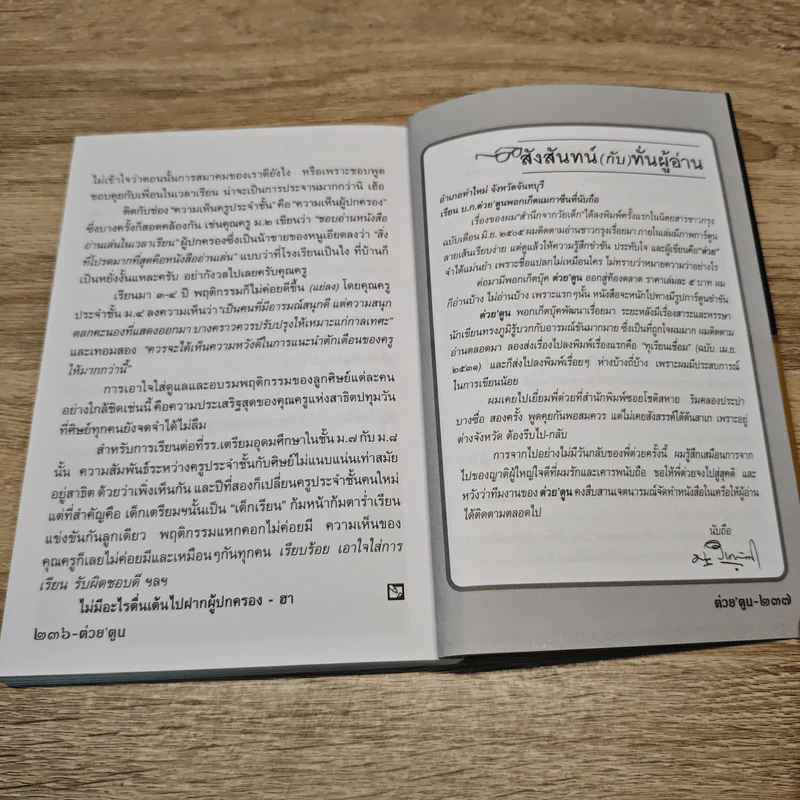 ไม่เข้าใจว่าตอนนั้นการสมาคมของเราดียังไง หรือเพราะชอบพูด
ชอบคุยกับเพื่อนในเวลาเรียน น่าจะเป็นการประจานมากกว่านิ เฮ้อ
ติดกับช่อง “ความเห็นครูประจำชั้น” คือ “ความเห็นผู้ปกครอง”
ซึ่งบางครั้งก็สอดคล้องกัน เช่นคุณครู ม.๒ เขียนว่า “ชอบอ่านหนังสือ
อ่านเล่นในเวลาเรียน” ผู้ปกครองซึ่งเป็นน้าชายของหนูเอียดลงว่า “สิ่ง
ที่โปรดมากที่สุดคือหนังสืออ่านเล่น” แบบว่าที่โรงเรียนเป็นไง ที่บ้านก็
เป็นหยังงั้นแหละครับ อย่ากังวลไปเลยครับคุณครู
เรียนมา ๓-๔ ปี พฤติกรรมก็ไม่ค่อยดีขึ้น (แย่ลง) โดยคุณครู
ประจำชั้น ม.๔ ลงความเห็นว่า “เป็นคนที่มีอารมณ์สนุกดี แต่ความสนุก
ตลกคะนองที่แสดงออกมา บางคราวควรปรับปรุงให้เหมาะแก่กาลเทศะ”
และเทอมสอง “ควรจะได้เห็นความหวังดีในการแนะนำตักเตือนของครู
ให้มากกว่านี้”
การเอาใจใส่ดูแลและอบรมพฤติกรรมของลูกศิษย์แต่ละคน
อย่างใกล้ชิดเช่นนี้ คือความประเสริฐสุดของคุณครูแห่งสาธิตปทุมวัน
ที่ศิษย์ทุกคนยังจดจำได้ไม่ลืม
สำหรับการเรียนต่อที่รร.เตรียมอุดมศึกษาในชั้น ม.๗ กับ ม.๘
นั้น ความสัมพันธ์ระหว่างครูประจำชั้นกับศิษย์ไม่แนบแน่นเท่าสมัย
อยู่สาธิต ด้วยว่าเพิ่งเห็นกัน และปีที่สองก็เปลี่ยนครูประจำชั้นคนใหม่
แต่ที่สำคัญคือ เด็กเตรียมฯนั้นเป็น “เด็กเรียน” ก้มหน้าก้มตาร่ำเรียน
แข่งขันกันลูกเดียว พฤติกรรมแหกคอกไม่ค่อยมี ความเห็นของ
คุณครูก็เลยไม่ค่อยมีและเหมือนๆกันทุกคน เรียบร้อย เอาใจใส่การ
เรียน รับผิดชอบดี ฯลฯ
ไม่มีอะไรตื่นเต้นไปฝากผู้ปกครอง - ฮา
๒๓๖-ต่วย'ตูน
สังสันทน์ (กับ) ท่านผู้อ่าน
อำเภอท่าใหม่ จังหวัดจันทบุรี
เรียน บ.ก.ต่วย'ตูนพอกเก็ตแมกาซีนที่นับถือ
เรื่องของผม “สำนึกจากวัยเด็ก” ได้ลงพิมพ์ครั้งแรกในนิตยสารชาวกรุง
ฉบับเดือน มิ.ย. ๒๕๐๕ ผมติดตามอ่านชาวกรุงเรื่อยมา ภายในเล่มมีภาพการ์ตูน
ลายเส้นเรียบง่าย แต่ดูแล้วให้ความรู้สึกขำขัน ประทับใจ และผู้เขียนคือ “ต่วย”
จำได้แม่นยำ เพราะชื่อแปลกไม่เหมือนใคร ไม่ทราบว่าหมายความว่าอย่างไร
ต่อมามีพอกเก็ตบุ๊ค ต่วย'ตูน ออกสู่ท้องตลาด ราคาเล่มละ ๕ บาท ผม
ก็อ่านบ้าง ไม่อ่านบ้าง เพราะแรกๆนั้น หนังสือจะหนักไปทางมีรูปการ์ตูนขำขัน
ต่วย'ตูน พอกเก็ตบุ๊คพัฒนาเรื่อยมา ระยะหลังมีเรื่องสาระและหรรษา
นักเขียนทรงภูมิรู้บวกกับอารมณ์ขันมากมาย ซึ่งเป็นที่ถูกใจผมมาก ผมติดตาม
อ่านตลอดมา ลองส่งเรื่องไปลงพิมพ์เรื่องแรกคือ “ทุเรียนเชื่อม” (ฉบับ เม.ย.
๒๕๓๑) และก็ส่งไปลงพิมพ์เรื่อยๆ ห่างบ้างถี่บ้าง เพราะผมมีประสบการณ์
ในการเขียนน้อย
ผมเคยไปเยี่ยมพี่ต่วยที่สำนักพิมพ์ซอยโชติสหาย ริมคลองประปา
บางซื่อ สองครั้ง พูดคุยกันพอสมควร แต่ไม่เคยสังสรรค์ได้ต้นสาเก เพราะอยู่
ต่างจังหวัด ต้องรีบไป-กลับ
การจากไปอย่างไม่มีวันกลับของพี่ต่วยครั้งนี้ ผมรู้สึกเสมือนการจาก
ไปของญาติผู้ใหญ่ใจดีที่ผมรักและเคารพนับถือ ขอให้พี่ต่วยจงไปสู่สุคติ และ
หวังว่าทีมงานของ ต่วย'ตูน คงสืบสานเจตนารมณ์จัดทำหนังสือในเครือให้ผู้อ่าน
ได้ติดตามตลอดไป
นับถือ
ต่วย'ตูน-๒๓๗